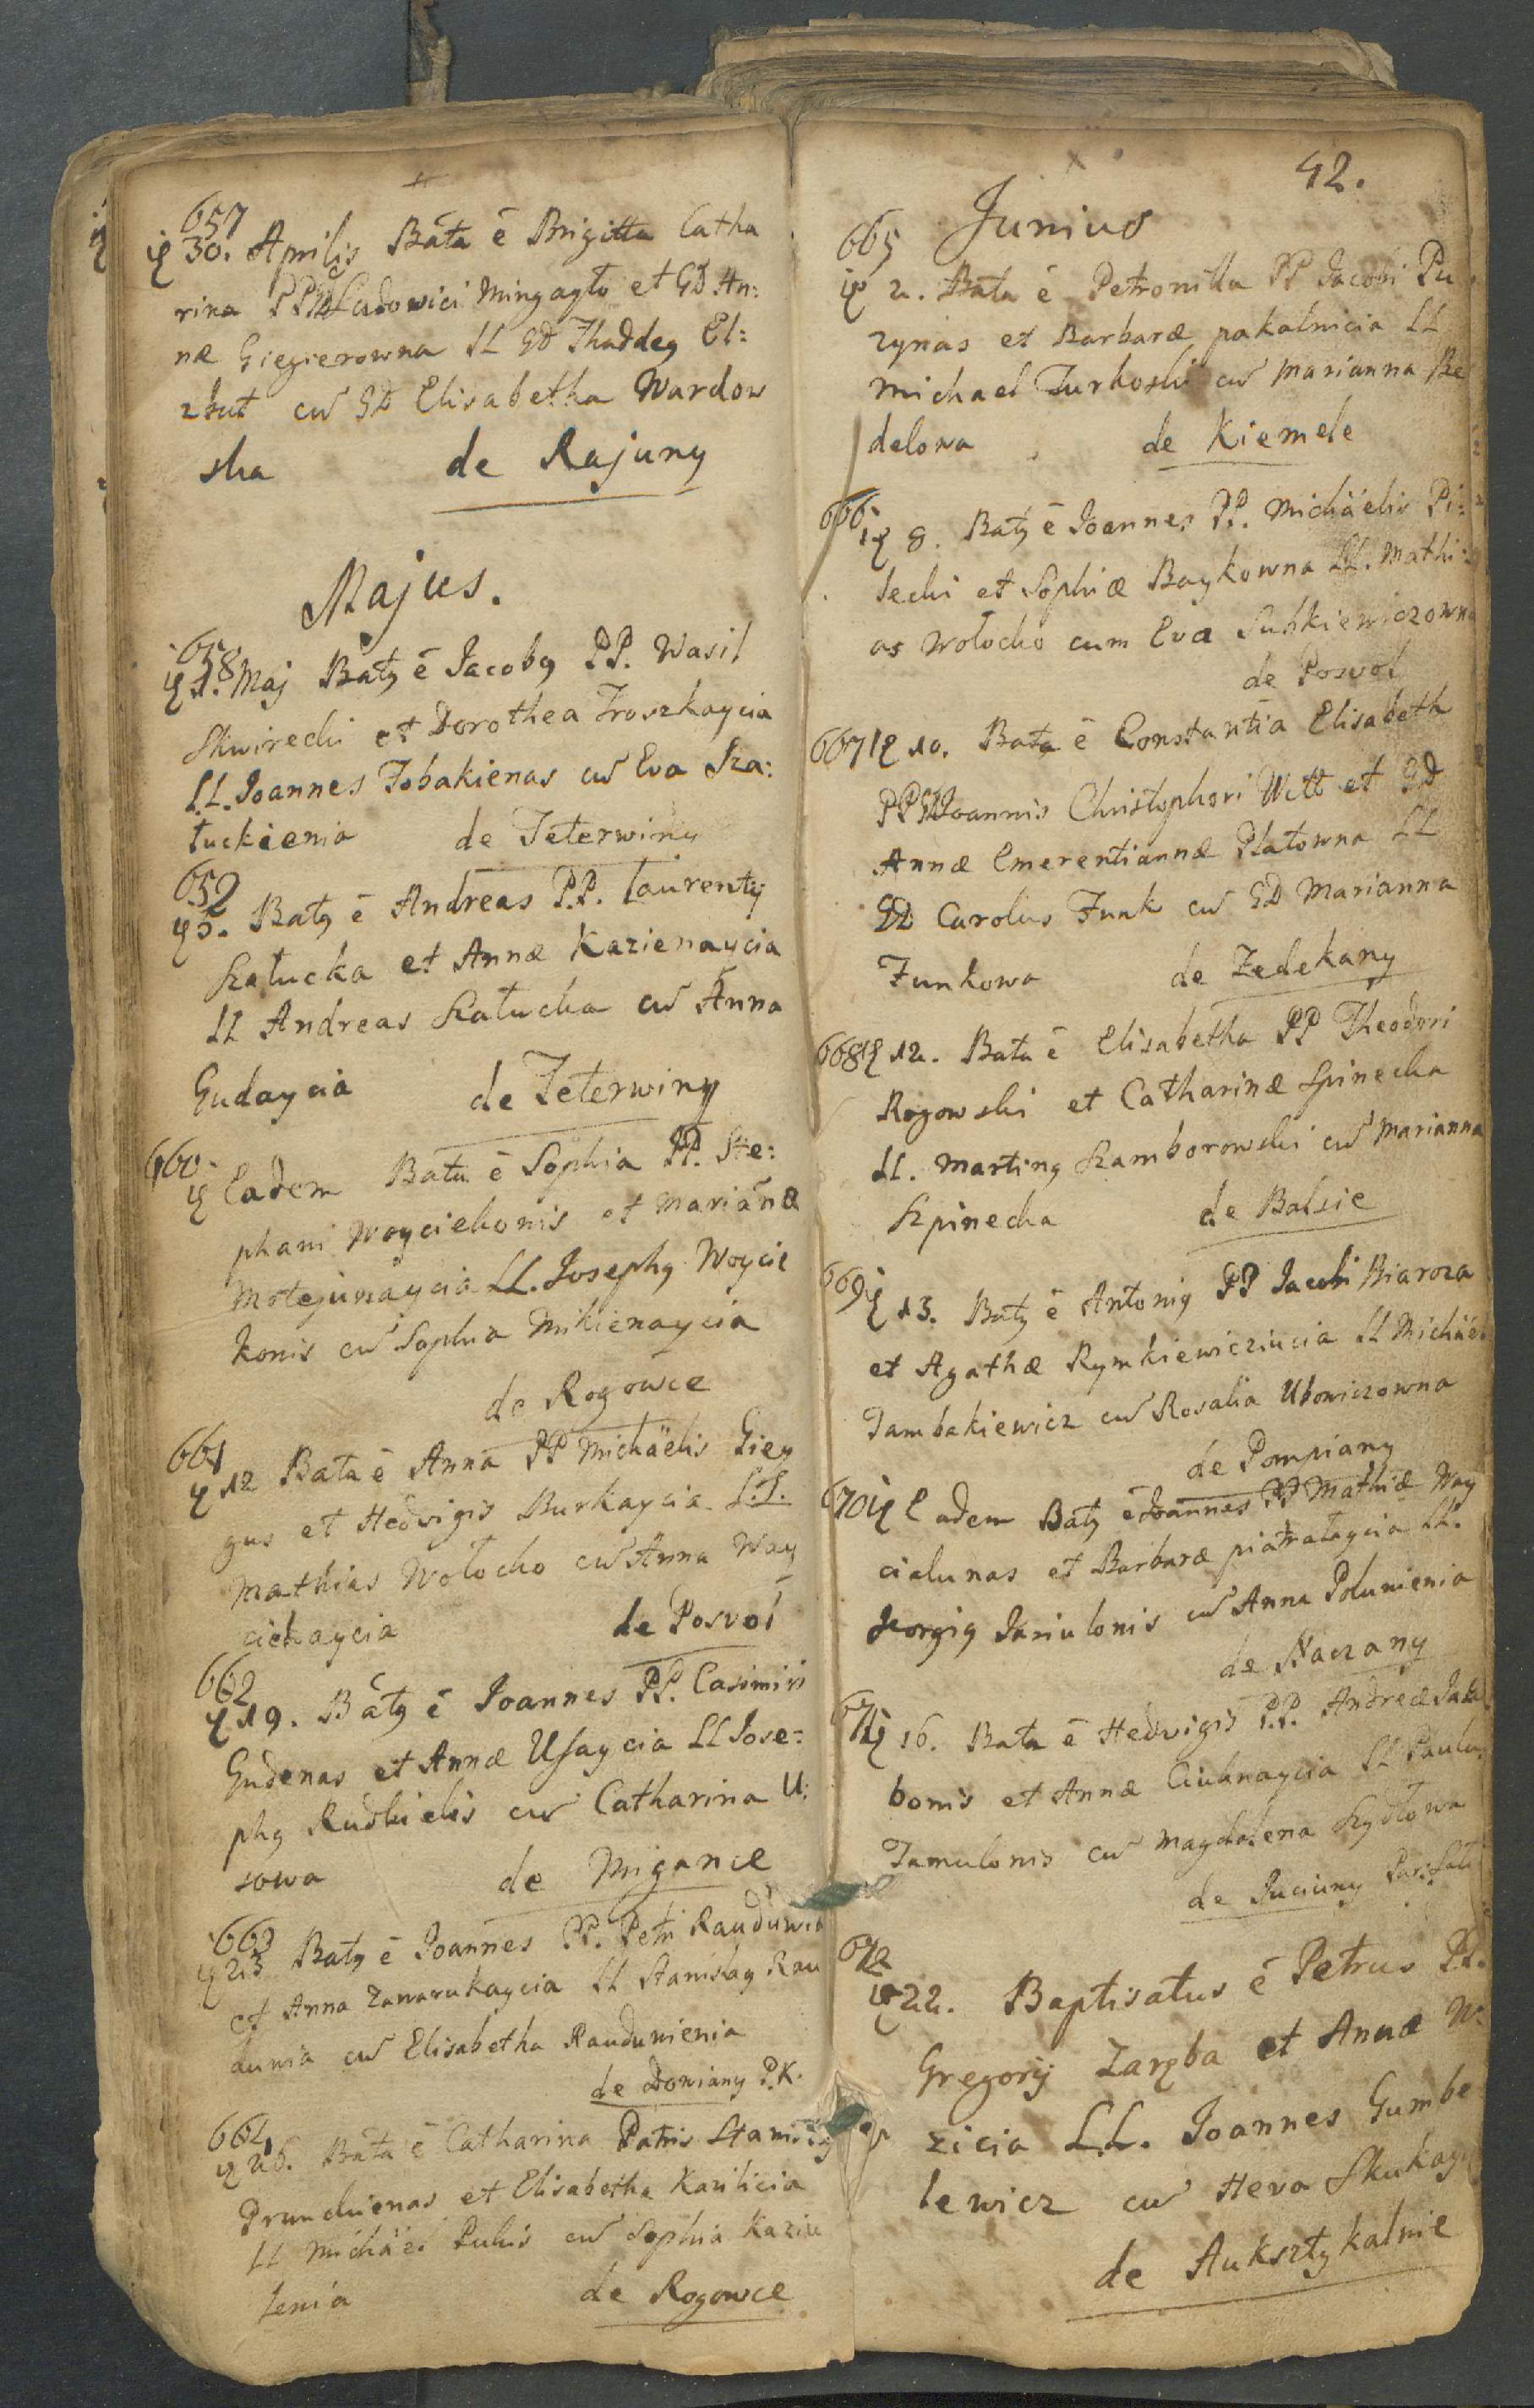 657
30. Aprilis Bata ē Brigitta Catha
rina PP GD Ludowici Mingayło et GD An:
næ Giegierowna LL GD Thaddeg El:
zbut cū GD Elisabetha Wardow
ska de Rajuny
Majus.
658
1. Maj Batg ē Jacobg PP. Wasil
Skwirecki et Dorothea Troszkaycia
LL. Joannes Tobakienas cū Eva Sza:
łuckienia de Teterwiny
659
5. Batg ē Andreas P.P. Laurentij
Szałucka et Annæ Kazienaycia
LL Andreas Szałucka cū Anna
Gudaycia de Teterwiny
660
Eadem Bata ē Sophia PP. Ste:
phani Woyciekonis et Mariānæ
Motejunaycia LL. Josephg Woycie
konis cū Sophia Mikienaycia
de Rogowce
661
12 Bata ē Anna PP Michäelis Gieg
gus et Hedvigis Burkaycia L.L.
Mathias Wołocko cū Anna Way
ciekaycia de Posvol
662
19. Batg ē Joannes PP. Casimiri
Gudenas et Annæ Usaycia LL Jose:
phg Rudkielis cū Catharina U:
sowa de Migance
663
23 Batg ē Joannes PP. Petri Raudunia
et Anna Zawarukaycia LL Stanislag Rau
dunia cū Elisabetha Raudunienia
de Doniany P.K.
664
26. Bata ē Catharina Patris Stanislai
Drunduienas et Elisabetha Kazilicia
LL Michäel Pukis cū Sophia Kaziu
lenia de Rogowce
42.
Junius
665
2. Bata ē Petronilla PP Jacobi Pu
zynas et Barbaræ pakalnicia LL
Michael Turkoski cū Marianna Be
delowa de Kiemele
666
8. Batg ē Joannes PP. Michäelis Pi:
lecki et Sophiæ Baykowna LL. Mathi:
as Wołocko cum Eva Sutkiewiczowna
de Posvol
667 10. Bata ē Constantia Elisabeth
PP GD Joannis Christophori Witt et GD
Annæ Emerentiannæ Platowna LL
GD Carolus Funk cū GD Marianna
Funkowa de Zedekany
668 12. Bata ē Elisabetha PP Theodori
Rogowski et Catharinæ Spinecka
LL. Marting Szamborowski cū Marianna
Szpinecka de Balsie
669 13. Batg ē Antonig PP Jacobi Biaroza
et Agathæ Rymkiewicziucia LL Michäel
Dambakiewicz cū Rosalia Ubowiczowna
de Pompiany
670 Eadem Batg ē Joannes PP Mathiæ Way
cialunas et Barbaræ piatrałaycia LL.
Georgig Jariulonis cū Anna Polunienia
de Naczany
671 16. Bata ē Hedvigis P.P. Andreæ Jaka
bonis et Annæ Ciuknaycia LL Paulus
Jamulonis cū Magdalena Szydłowa
de Juciuny
672
22. Baptisatus ē Petrus PP.
Gregorij Zaręba et Annæ W:
zicia LL. Joannes Gumbe
lewicz cū Heva Skukay
de Auksztykalnie